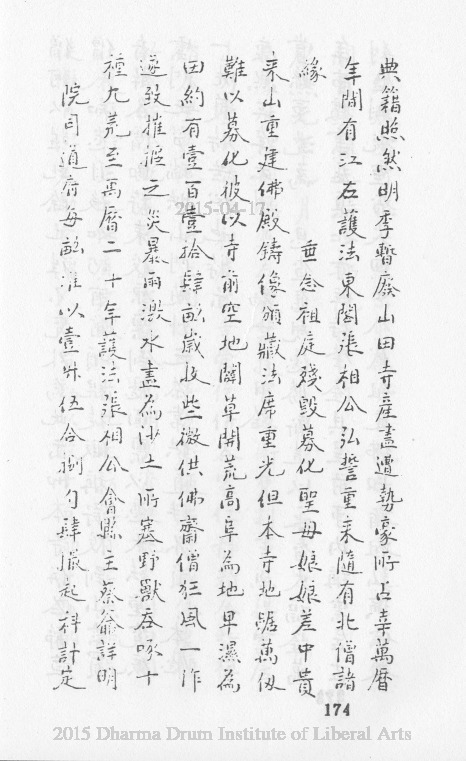 典籍照然明季暫廢山田寺產盡遭勢豪所占幸萬曆
年間有江右護法東閣張相公弘誓重來隨有北僧諸
緣
垂念祖庭殘毀募化聖母娘娘差中貴
來山重建佛殿鑄像頒藏法席重光但本寺地踞萬仞
難以募化彼以寺前空地闢草開荒高阜為地卑濕為
田約有壹百壹拾肆畝歲收些微供佛齋僧狂風一作
遂致摧握之災暴雨澂水盡為沙土所塞野獸吞啄十
種九荒至萬曆二十年護法張相公會縣主蔡翁詳明
院司道府每畝准以壹升伍合捌勺肆撮起科計定
174
2015-04-17
2015 Dharma Drum Institute of Liberal Arts